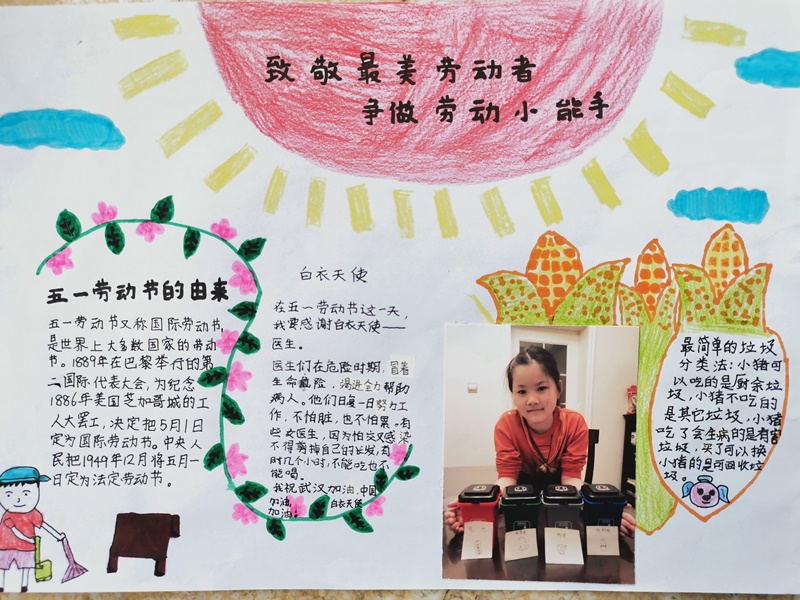 致敬最美劳动者
争做劳动小能手
五一劳动节的由来
五一劳动节又称国际劳动节,
是世界上大多数国家的劳动
节。1889年在巴黎举行的第
二国际代表大会,为纪念
1886年美国芝加哥城的工
人大罢工,决定把5月1日
定为国际劳动节。中央人
民把1949年12月将五月一
日定为法定劳动节。
白衣天使
在五一劳动节这一天,
我要感谢白衣天使——
医生。
医生们在危险时期,冒着
生命危险,竭进全力帮助
病人。他们日复一日努力工
作,不怕脏,也不怕累。有
些女医生,因为怕交叉感染
不得剪掉自己的长发,有
时几个小时,不能吃也不
能喝。
我祝武汉加油,中国
加油,白衣天使
加油!
最简单的垃圾
分类法:小猪可
以吃的是厨余垃
圾,小猪不吃的
是其它垃圾,小猪
吃了会生病的是有害
垃圾,买了可以换
小猪的是可回收垃
圾。